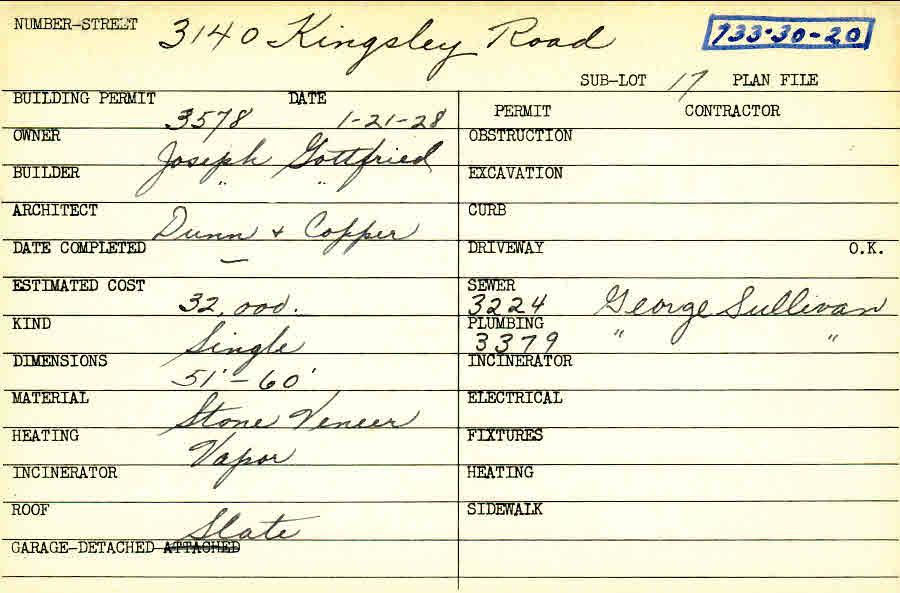 NUMBER-STREET 3140 Kingsley Road 733-30-20
SUB-LOT 17 PLAN FILE
BUILDING PERMIT 3578 DATE 1-21-28
OWNER Joseph Gottfried
BUILDER " "
ARCHITECT Dunn + Copper
DATE COMPLETED —
ESTIMATED COST 32,000.
KIND Single
DIMENSIONS 51' - 60'
MATERIAL Stone Veneer
HEATING Vapor
INCINERATOR
ROOF Slate
GARAGE-DETACHED ATTACHED
PERMIT CONTRACTOR
OBSTRUCTION
EXCAVATION
CURB
DRIVEWAY O.K.
SEWER 3224 George Sullivan
PLUMBING 3379 " "
INCINERATOR
ELECTRICAL
FIXTURES
HEATING
SIDEWALK